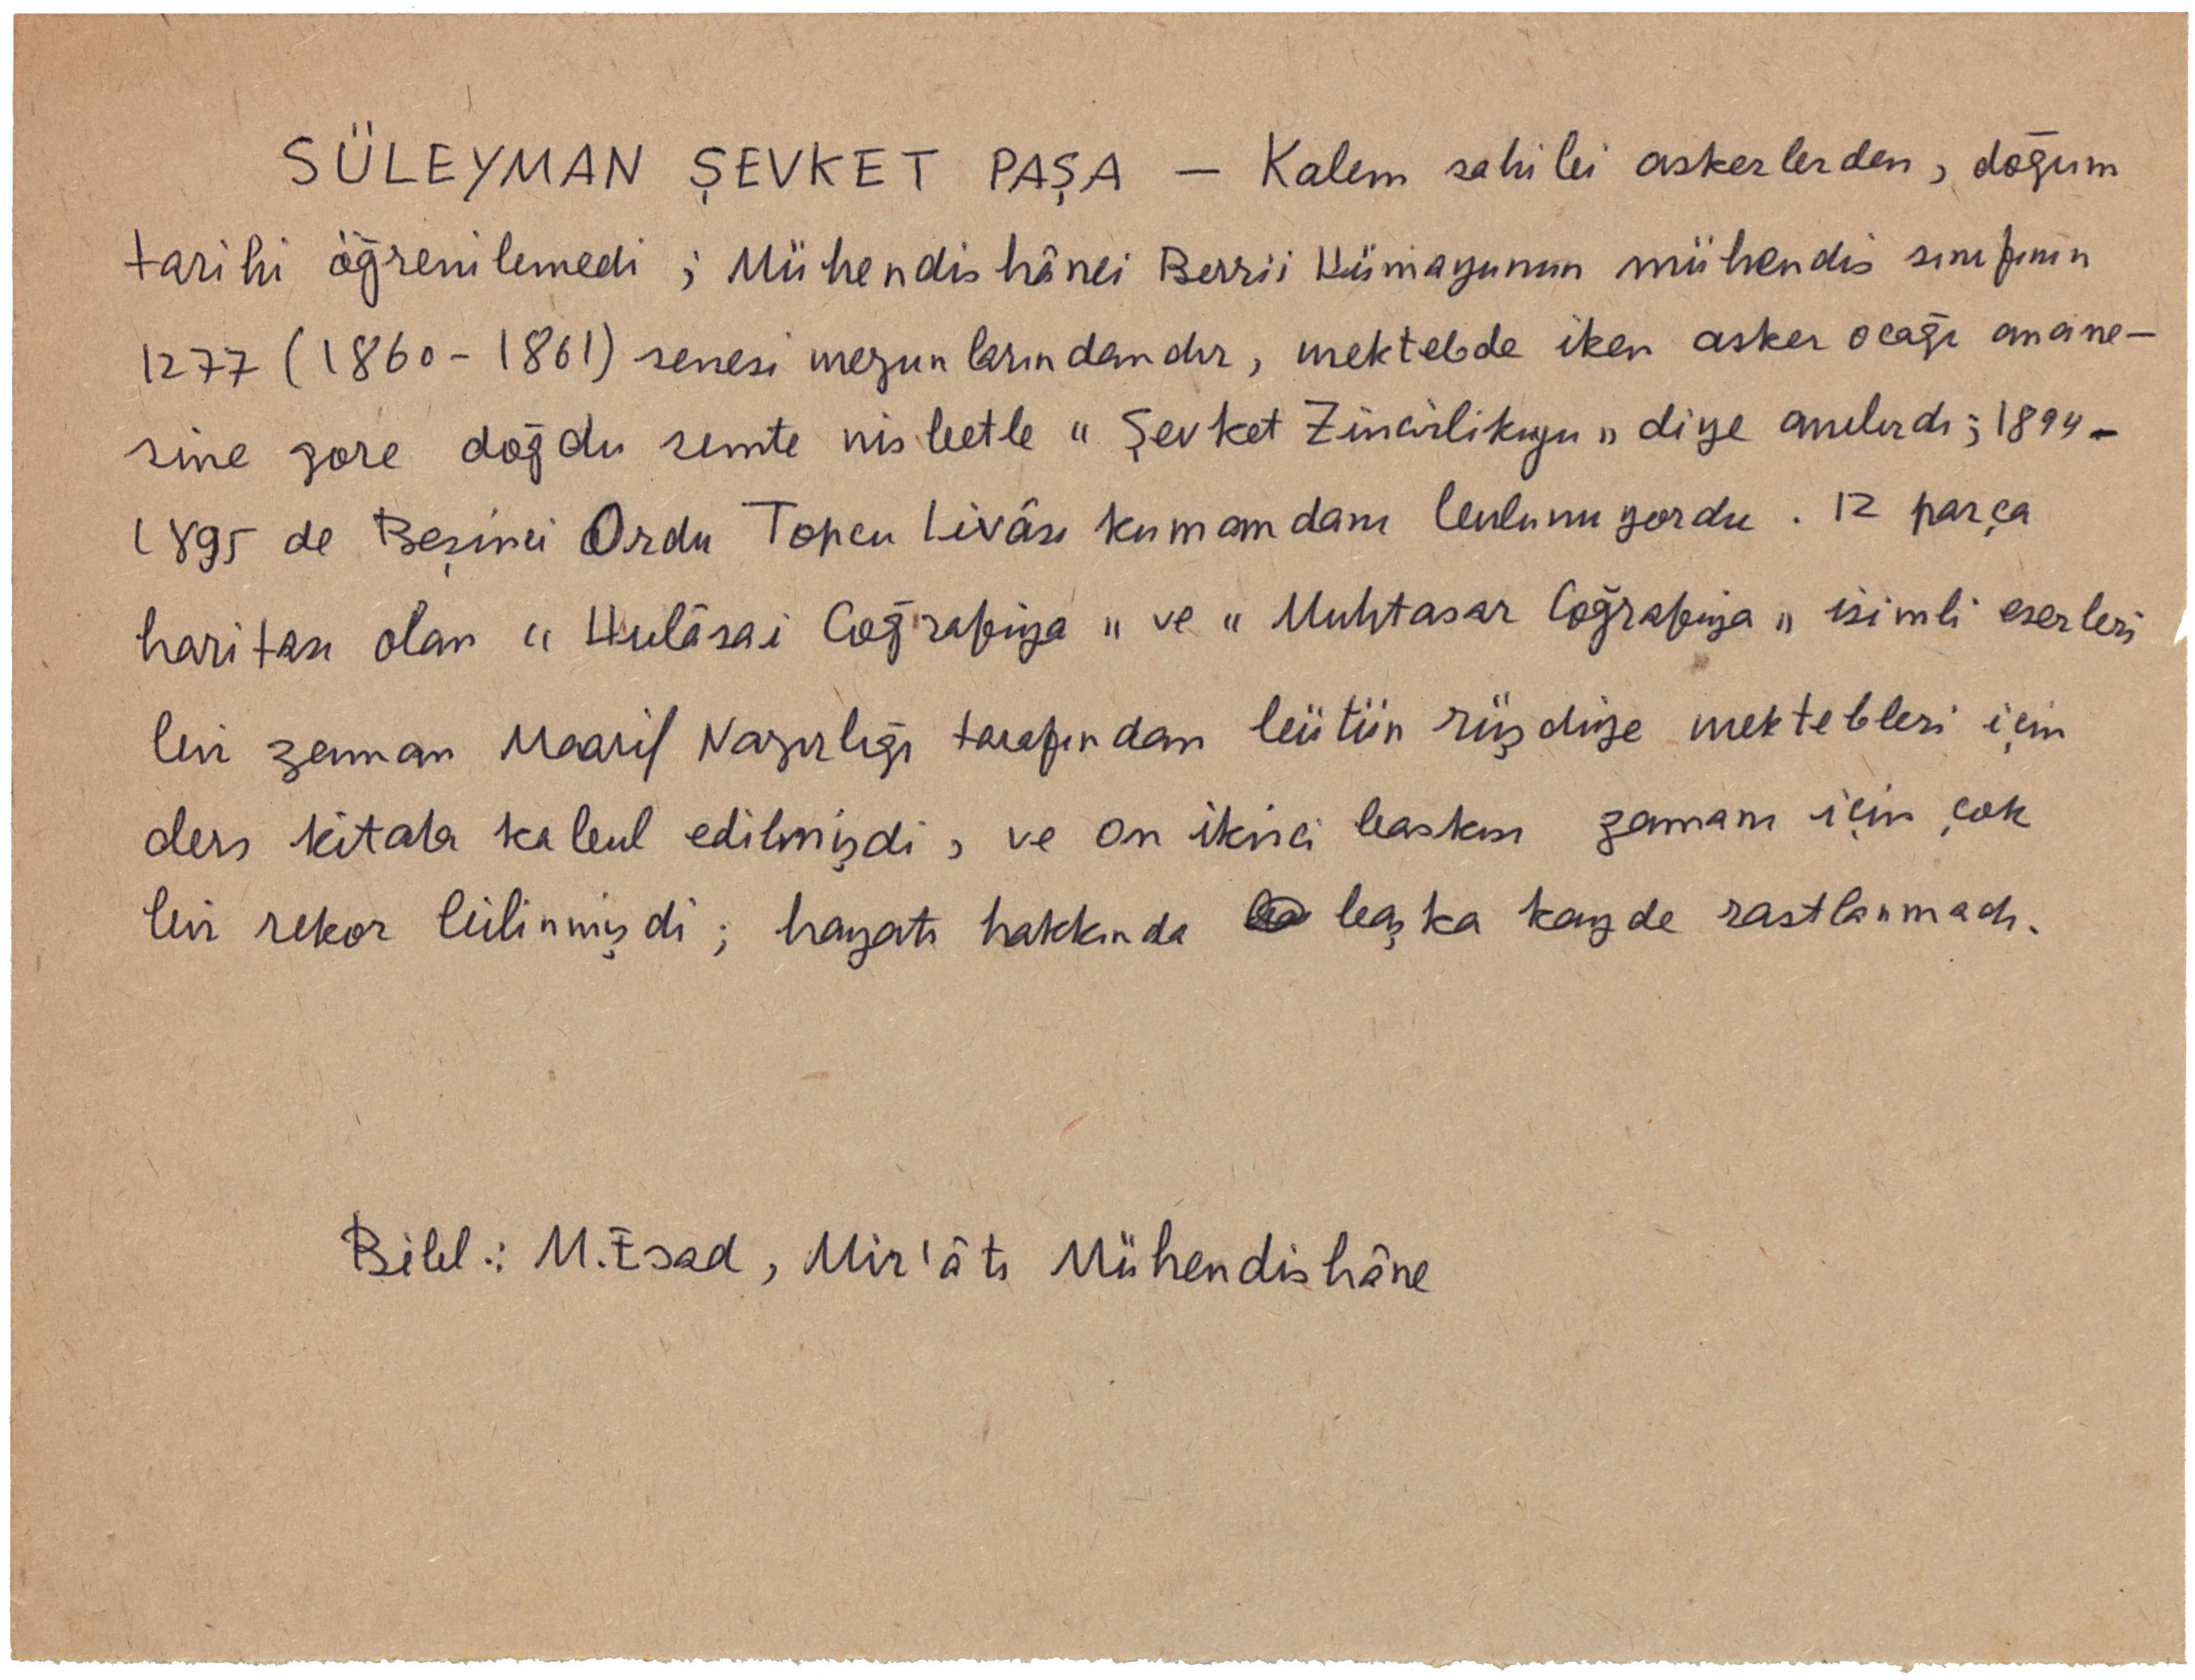 SÜLEYMAN ŞEVKET PAŞA — Kalem sahibi askerlerden, doğum
tarihi öğrenilemedi ; Mühendishânei Berrii Hümayunun mühendis sınıfının
1277 (1860-1861) senesi mezunlarındandır, mektebde iken asker ocağı anane-
sine gore doğdu semte nisbetle "Şevket Zincirlikuyu" diye anılırdı ; 1894-
1895 de Beşinci Ordu Topcu Livâsı kumandanı bulunuyordu . 12 parça
haritası olan "Hulâsai Coğrafiya" ve "Muhtasar Coğrafiya" isimli eserleri
bir zaman Maarif Nazırlığı tarafından bütün rüşdiye mektebleri için
ders kitabı kabul edilmişdi , ve on ikinci baskısı zamanı için çok
bir rekor bilinmişdi ; hayatı hakkında başka kayde rastlanmadı.
Bibl.: M. Esad, Mir'âtı Mühendishâne